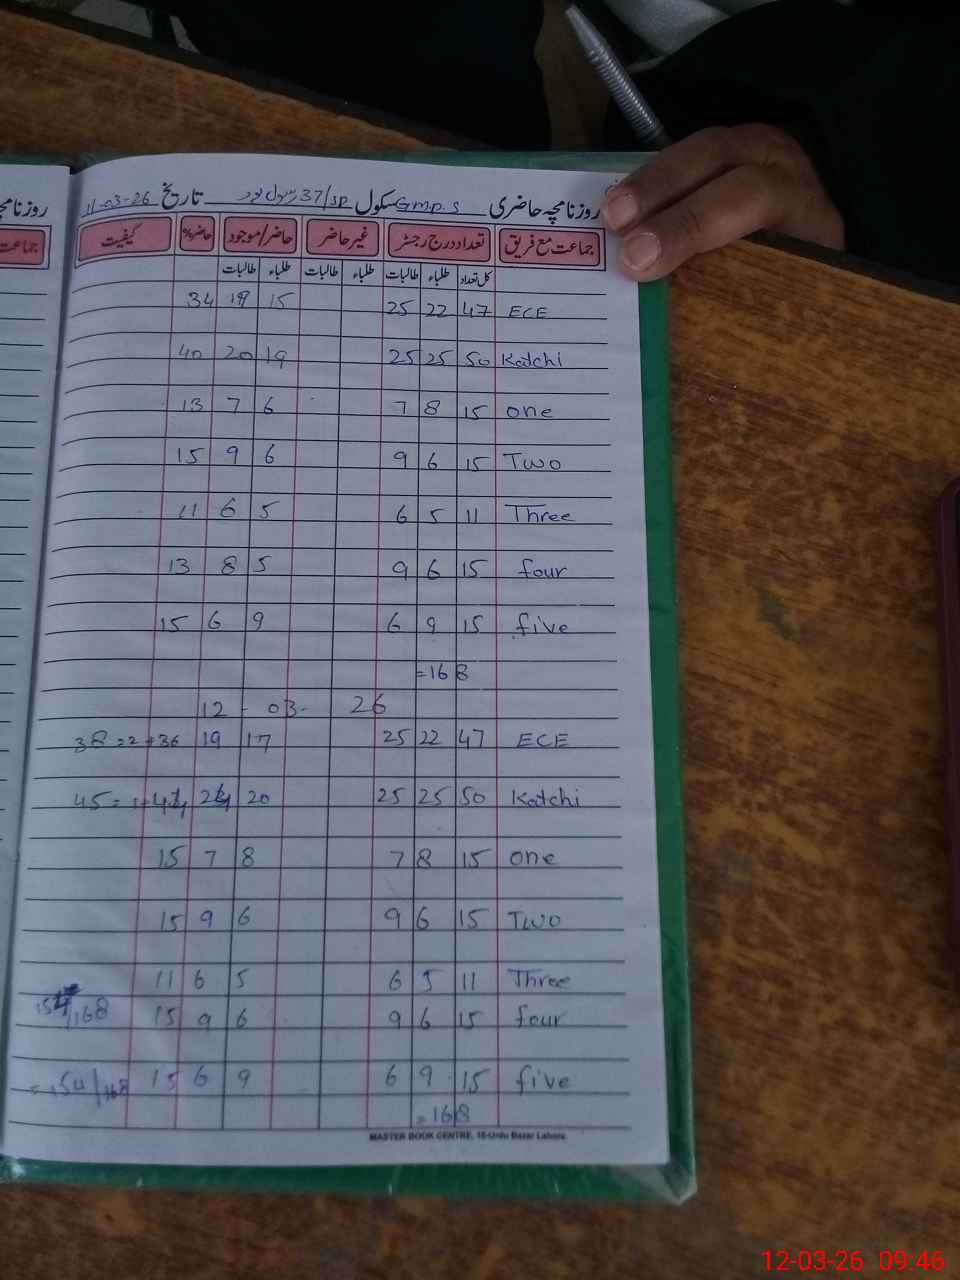 روزنامچہ حاضری G.m.p.s سکول 37/SP رسول پور تاریخ 11-03-26
جماعت مع فریق تعداد درج رجسٹر غیر حاضر حاضر/موجود حاضر% کیفیت
کل تعداد طلباء طالبات طلباء طالبات طلباء طالبات
ECE 47 22 25 15 19 34
Katchi 50 25 25 19 20 40
one 15 8 7 6 7 13
Two 15 6 9 6 9 15
Three 11 5 6 5 6 11
four 15 6 9 5 8 13
five 15 9 6 9 6 15
=168
12 - 03- 26
ECE 47 22 25 17 19 38=2+36
Katchi 50 25 25 20 24 45=1+44
one 15 8 7 8 7 15
Two 15 6 9 6 9 15
Three 11 5 6 5 6 11
four 15 6 9 6 9 15 154/168
five 15 9 6 9 6 15 =154/168
=168
MASTER BOOK CENTRE, 16-Urdu Bazar Lahore
روزنامچہ
جماعت
12-03-26 09:46